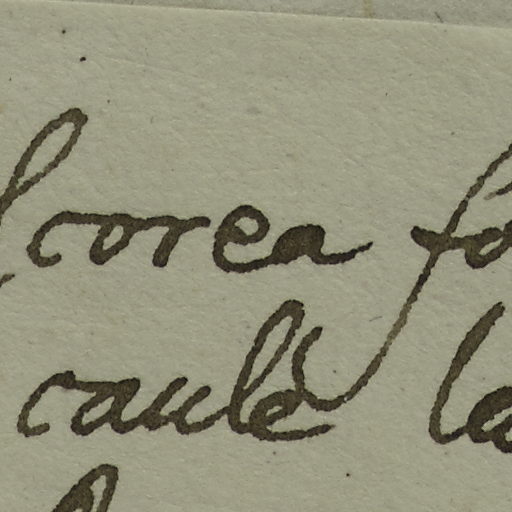 ſcorea fo
caulè la